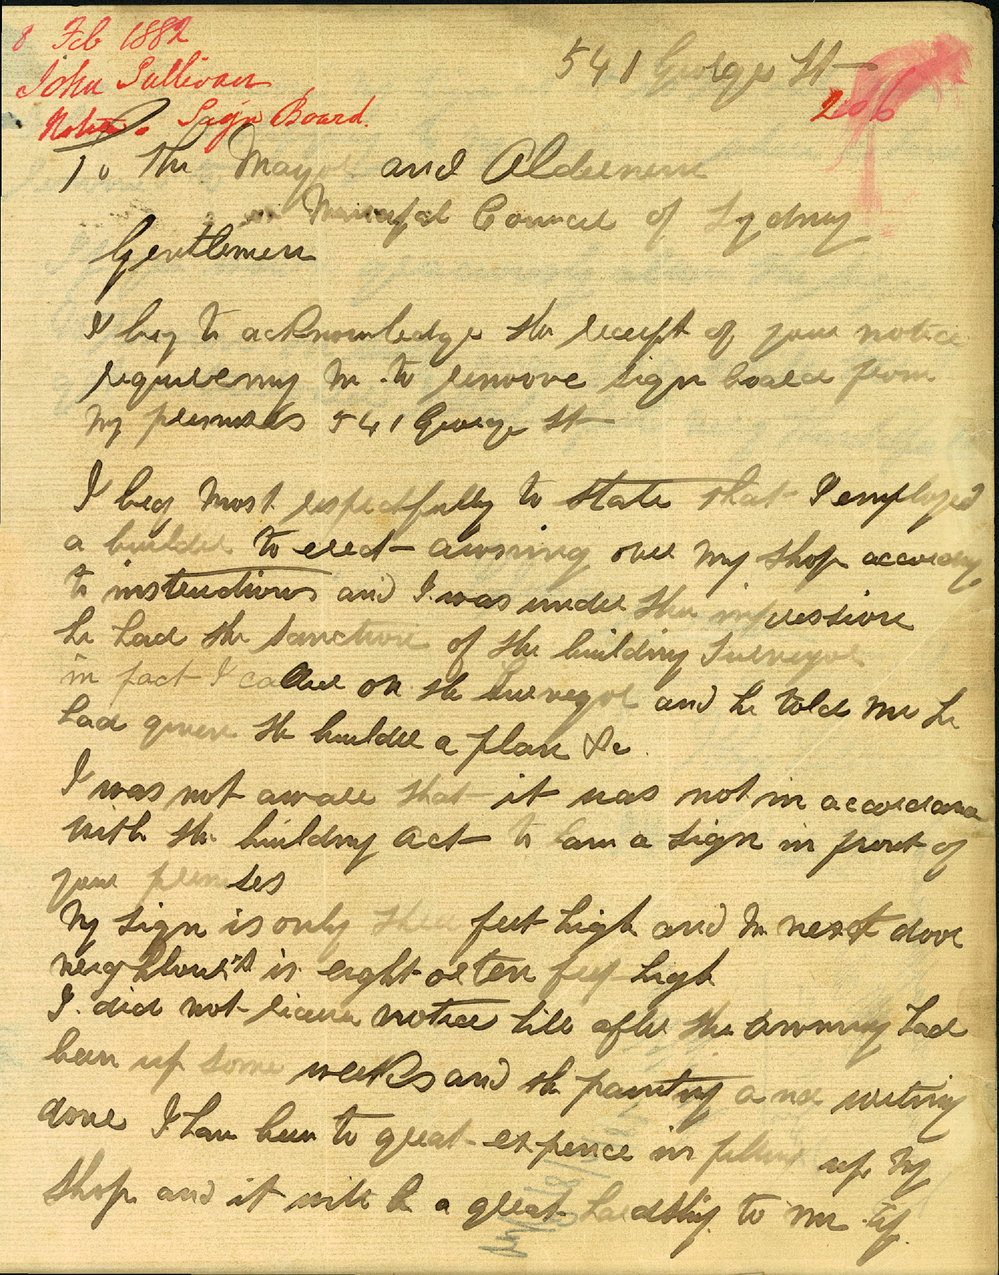 8 Feb 1882
John Sullivan
Notice. Sign Board.
541 George St
206
To the Mayor and Aldermen
Council of Sydney
Gentlemen
I beg to acknowledge the receipt of your notice
requireing me to remoove sign board from
my premises 541 George St
I beg most respectfully to state that I employed
a builder to erect awning over my shop according
to instructions and I was under the impression
he had the sanction of the building Surveyor
in fact I called on the Surveyor and he told me he
had given the builder a plan &c.
I was not aware that it was not in accordance
with the building act to have a sign in front of
your premises
My sign is only three feet high and my next door
neighbour's is eight or ten feet high
I did not receive notice till after the awning had
been up some weeks and the painting and writing
done I have been to great expence in fitting up my
shop and it will be a great hardship to me if.